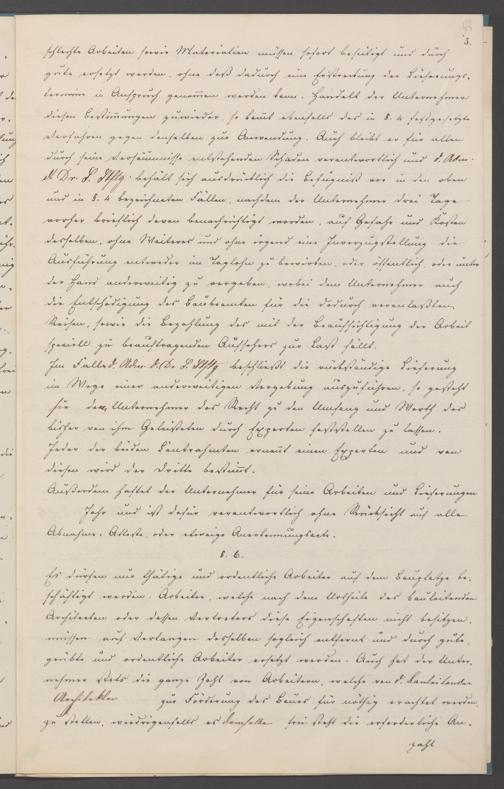 3.
schlechte Arbeiten sowie Materialien müssen sofort beseitigt und durch
gute ersetzt werden, ohne daß dadurch eine Erstreckung der Lieferungs-
termine in Anspruch genommen werden kann. Handelt der Unternehmer
diesen Bestimmungen zuwieder, so kommt ebenfalls das in §. 4 festgesetzte
Verfahren gegen denselben zur Anwendung. Auch bleibt er für allen
durch seine Versäumnisse entstehenden Schaden verantwortlich und d. Adm.
d. Dr. S. Stftg. behält sich ausdrücklich die Befugniß vor in den oben
und in §. 4 bezeichneten Fällen, nachdem der Unternehmer drei Tage
vorher brieflich davon benachrichtigt worden, auf Gefahr und Kosten
desselben, ohne Weiteres und ohne irgend eine Inverzugstellung die
Ausführung entweder im Taglohn zu bewirken, oder öffentlich, oder unter
der Hand anderweitig zu vergeben, wobei dem Unternehmer auch
die Entschädigung des Baubeamten für die dadurch veranlaßten
Reisen, sowie die Bezahlung des mit der Beaufsichtigung der Arbeit
speciell zu beauftragenden Aufsehers zur Last fällt.
Im Falle d. Adm. d. Dr. S. Stftg. beschließt die rückständige Lieferung
im Wege einer anderweitigen Vergebung auszuführen, so gesteht
sie dem Unternehmer das Recht zu den Umfang und Werth des
bisher von ihm Geleisteten durch Experten feststellen zu lassen.
Jeder der beiden Contrahenten ernennt einen Experten und von
diesen wird der Dritte bestimmt.
Außerdem haftet der Unternehmer für seine Arbeiten und Lieferungen
Jahr und ist dafür verantwortlich ohne Rücksicht auf alle
Abnahme-Atteste, oder etwaige Anerkennungsacte.
§. 6.
Es dürfen nur thätige und ordentliche Arbeiter auf dem Bauplatze be-
schäftigt werden. Arbeiter, welche nach dem Urtheile des bauleitenden
Architecten oder dessen Vertreters diese Eigenschaften nicht besitzen,
müssen auf Verlangen desselben sogleich entfernt und durch gute,
geübte und ordentliche Arbeiter ersetzt werden. Auch hat der Unter-
nehmer stets die ganze Zahl von Arbeitern, welche von d. bauleitenden
Architekten zur Förderung des Baues für nöthig erachtet werden,
zu stellen, widrigenfalls es demselben frei steht die erforderliche An-
zahl